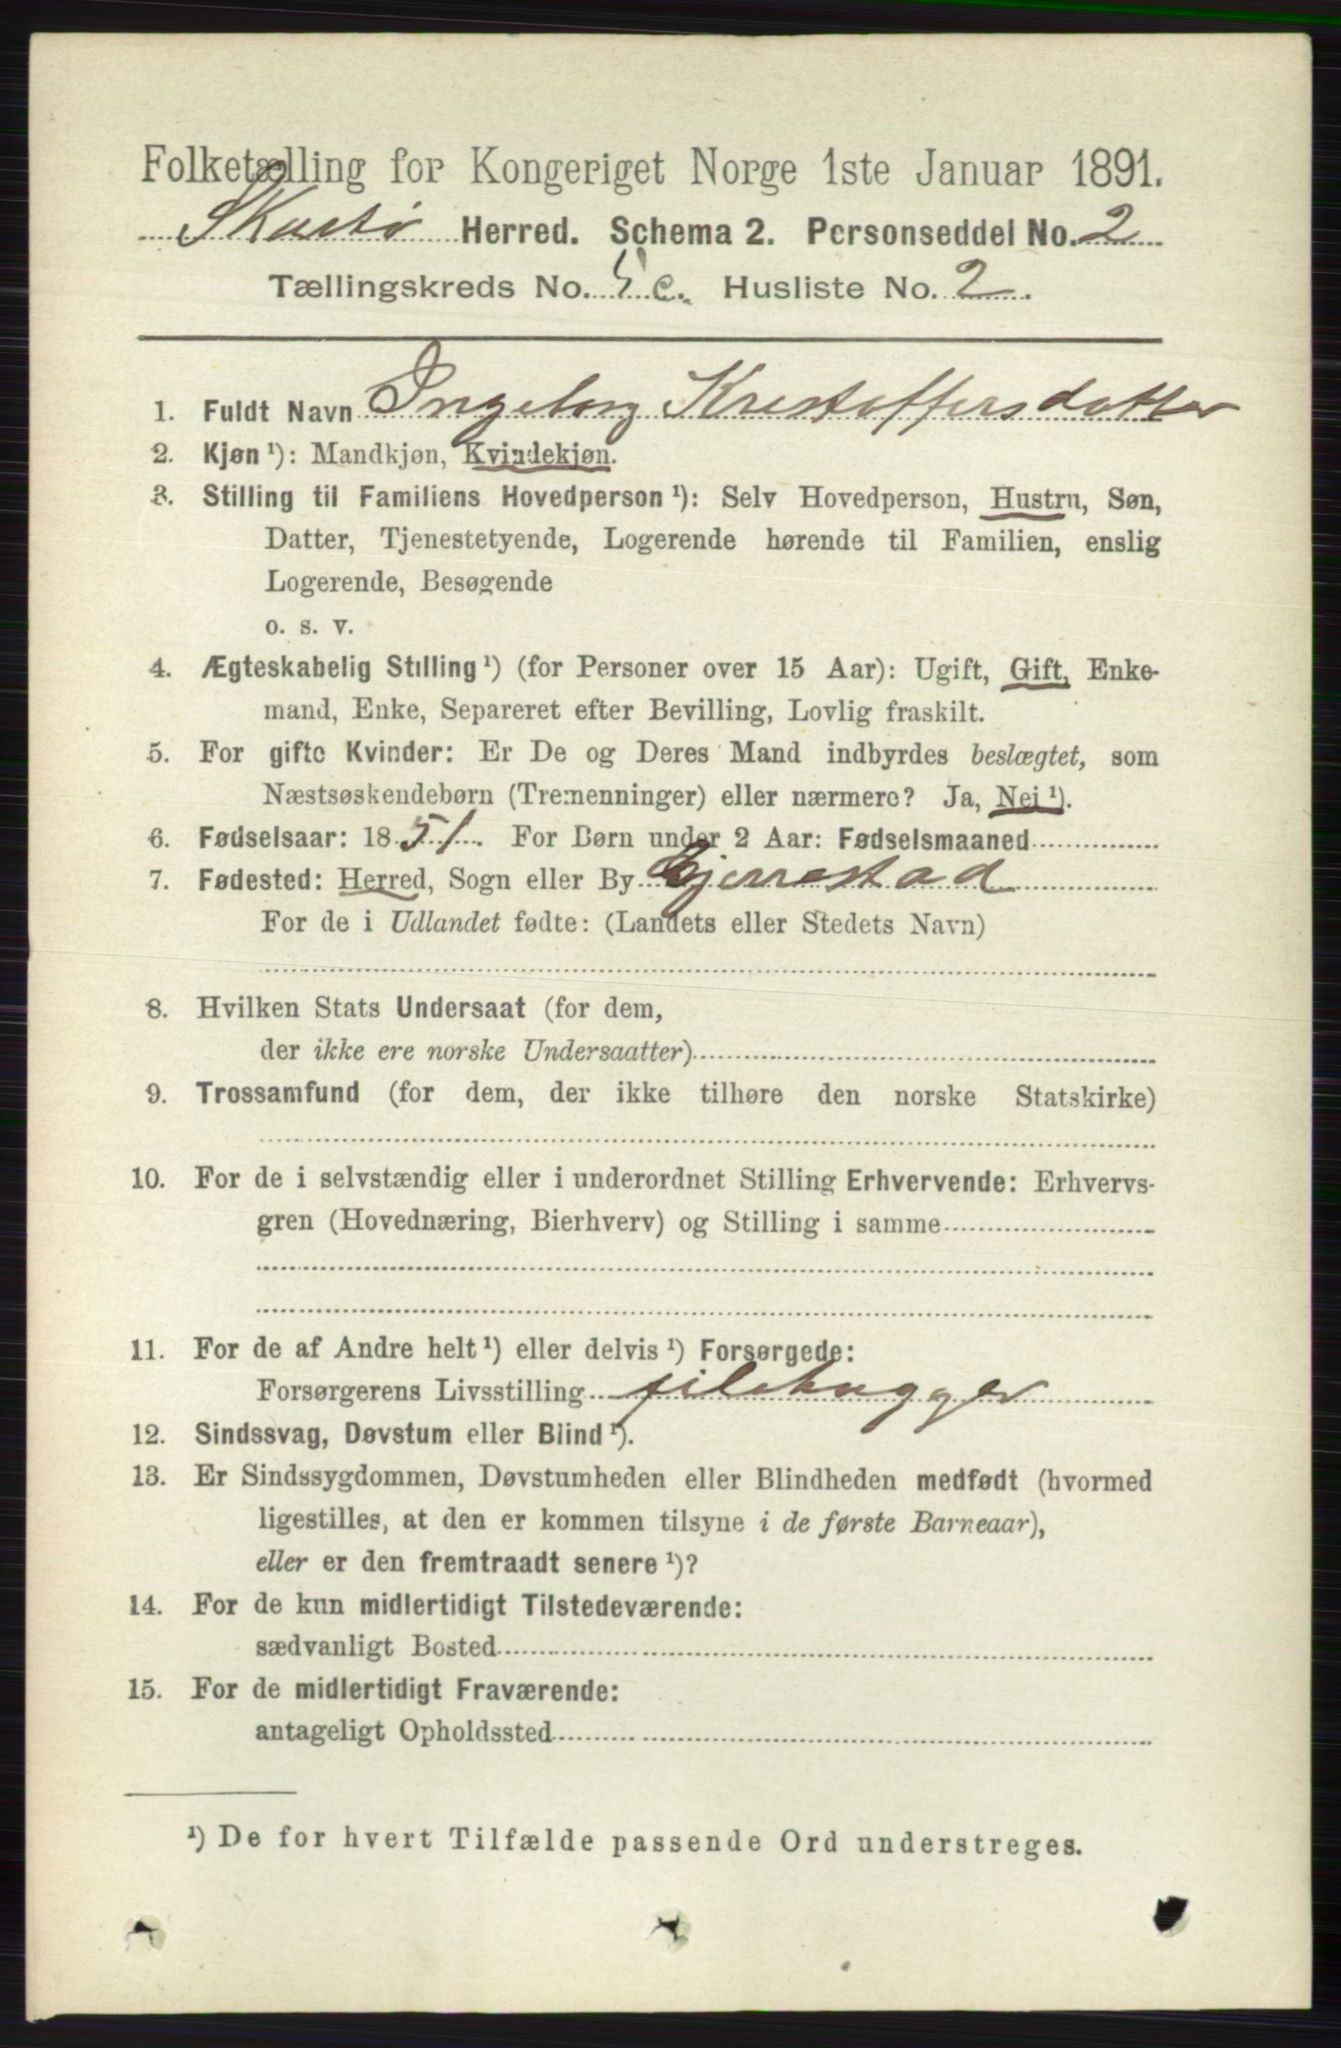 Folketælling for Kongeriget Norge 1ste Januar 1891.
Skaatø Herred. Schema 2. Personseddel No. 2
Tællingskreds No. 5 c. Husliste No. 2.
1. Fuldt Navn Ingeborg Kristoffersdatter
2. Kjøn ¹): Mandkjøn, Kvindekjøn.
3. Stilling til Familiens Hovedperson ¹): Selv Hovedperson, Hustru, Søn,
Datter, Tjenestetyende, Logerende hørende til Familien, enslig
Logerende, Besøgende
o. s. v.
4. Ægteskabelig Stilling ¹) (for Personer over 15 Aar): Ugift, Gift, Enke-
mand, Enke, Separeret efter Bevilling, Lovlig fraskilt.
5. For gifte Kvinder: Er De og Deres Mand indbyrdes beslægtet, som
Næstsøskendebørn (Tremenninger) eller nærmere? Ja, Nei ¹).
6. Fødselsaar: 1851. For Børn under 2 Aar: Fødselsmaaned
7. Fødested: Herred, Sogn eller By Gjerrestad
For de i Udlandet fødte: (Landets eller Stedets Navn)
8. Hvilken Stats Undersaat (for dem,
der ikke ere norske Undersaatter)
9. Trossamfund (for dem, der ikke tilhøre den norske Statskirke)
10. For de i selvstændig eller i underordnet Stilling Erhvervende: Erhvervs-
gren (Hovednæring, Bierhverv) og Stilling i samme
11. For de af Andre helt ¹) eller delvis ¹) Forsørgede:
Forsørgerens Livsstilling filehugger
12. Sindssvag, Døvstum eller Blind ¹).
13. Er Sindssygdommen, Døvstumheden eller Blindheden medfødt (hvormed
ligestilles, at den er kommen tilsyne i de første Barneaar),
eller er den fremtraadt senere ¹)?
14. For de kun midlertidigt Tilstedeværende:
sædvanligt Bosted
15. For de midlertidigt Fraværende:
antageligt Opholdssted
¹) De for hvert Tilfælde passende Ord understreges.